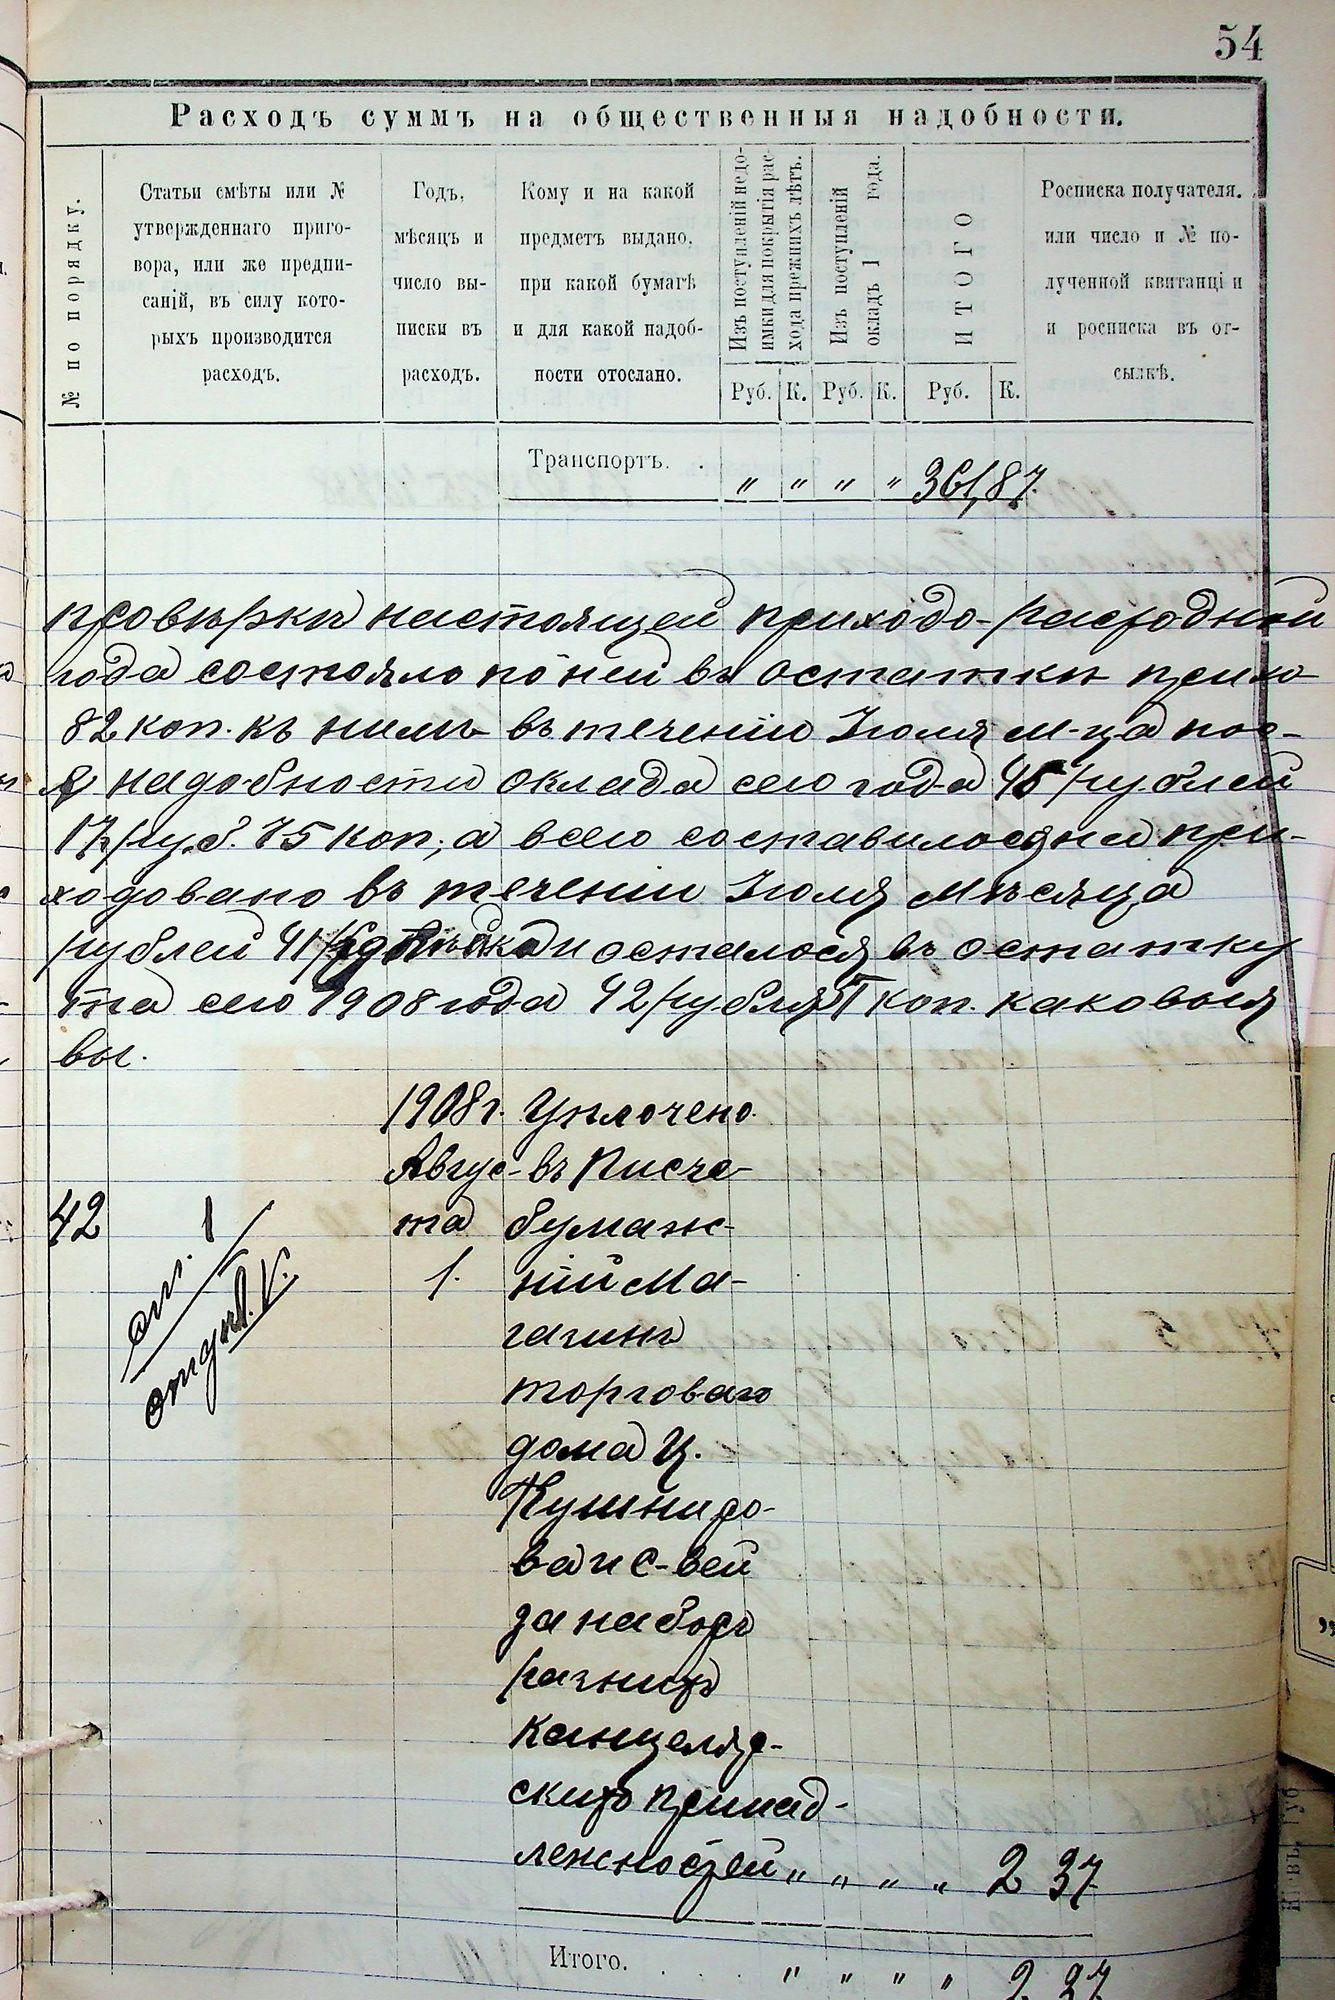 54
Расходъ суммъ на общественныя надобности.
№ по порядку.
Статьи смѣты или №
утвержденнаго приго-
вора, или же предпи-
саній, въ силу кото-
рыхъ производится
расходъ.
Годъ,
мѣсяцъ и
число вы-
писки въ
расходъ.
Кому и на какой
предметъ выдано,
при какой бумагѣ
и для какой надоб-
ности отослано.
Изъ поступленій недо-
имки для покрытія рас-
хода прежнихъ лѣтъ.
Изъ поступленій
окладъ 1 года.
ИТОГО
Росписка получателя.
или число и № по-
лученной квитанціи
и росписка въ от-
сылкѣ.
Руб. К. Руб. К. Руб. К.
Транспортъ. . " " " " 361,87.
провѣрки настоящей приходо-расходной
года состояло по ней въ остатки прихо
82 коп. къ нимъ въ теченіи Іюля м-ца пос-
надобности оклада сего года 45 рублей
17 руб. 75 коп., а всего составилось при-
ходовано въ теченіи Іюля мѣсяца
рублей 41 копѣйка и осталося въ остатку
та сего 1908 года 42 рубля коп. каковыя
вы.
1908 г. Уплочено
Авгус- въ Писче-
42 1 та бумаж-
1. ній Ма-
газинъ
ст.
отдѣл. V.
торговаго
дома Ц.
Кушниро-
ва и С-вей
за наборъ
разныхъ
канцеляр-
скихъ принад-
лежностей " " " " 2 37
Итого. . . . " " " " 2 37